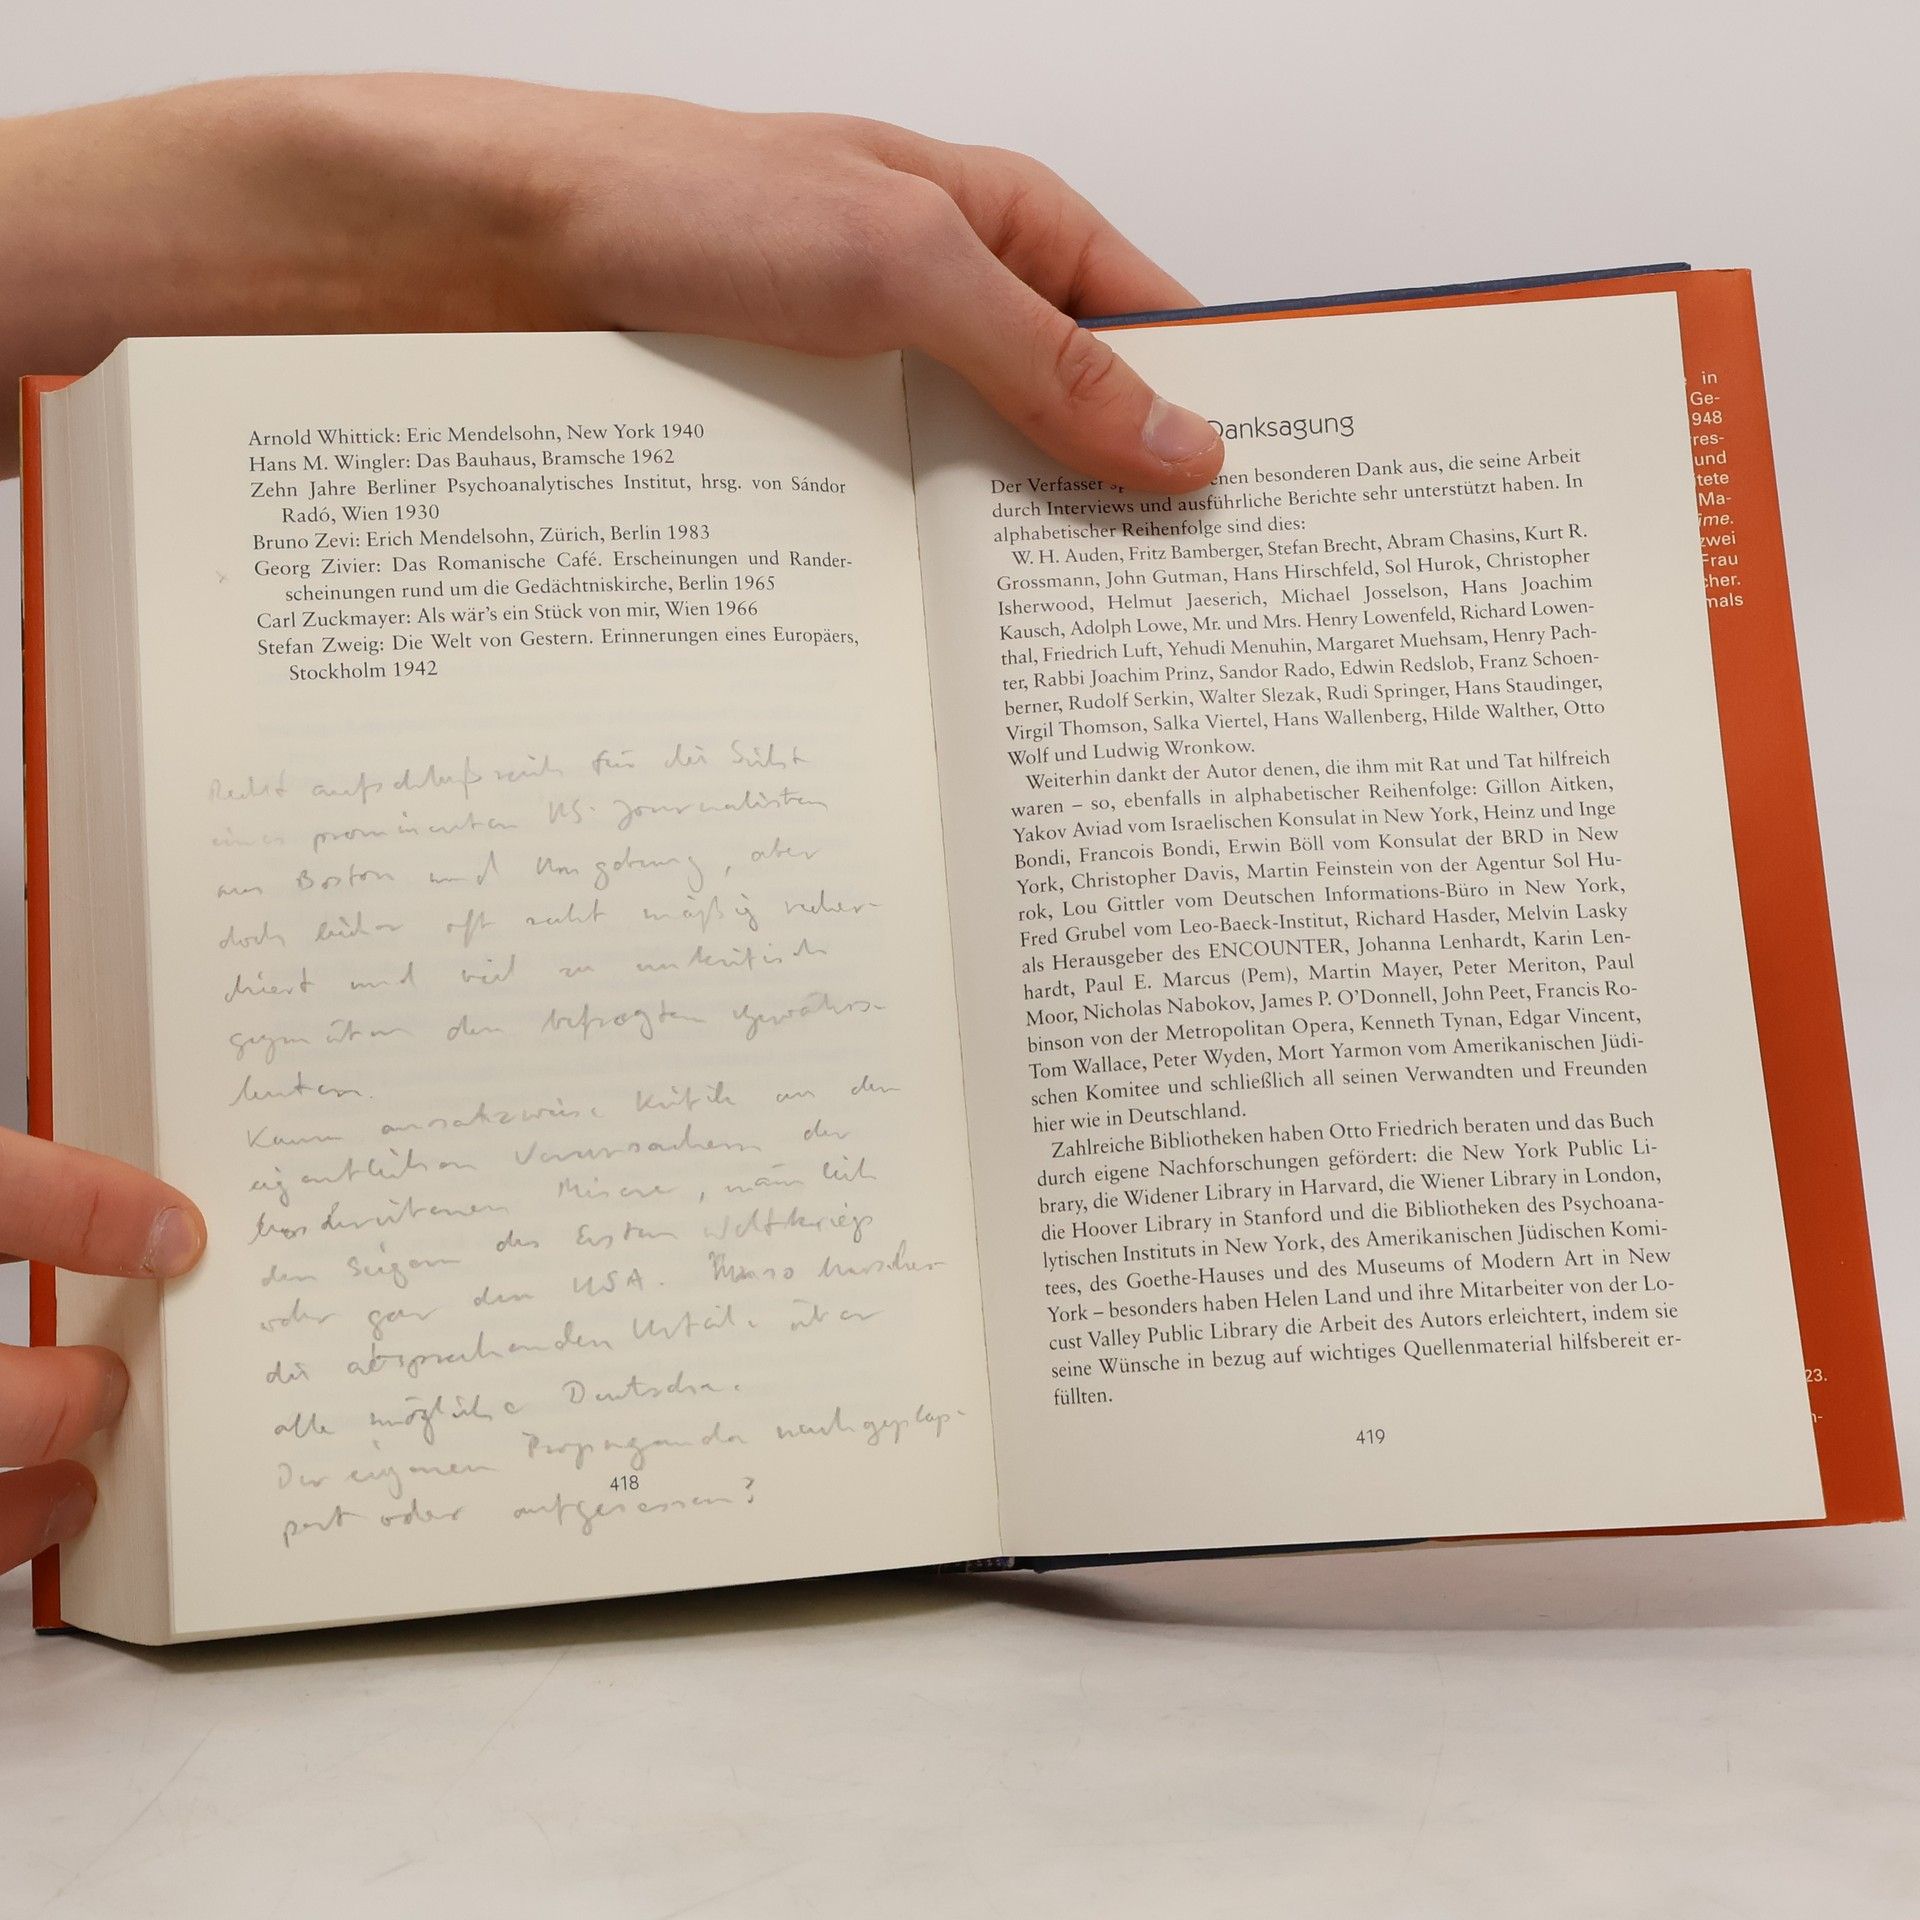 Arnold Whittick: Eric Mendelsohn, New York 1940
Hans M. Wingler: Das Bauhaus, Bramsche 1962
Zehn Jahre Berliner Psychoanalytisches Institut, hrsg. von Sándor
Radó, Wien 1930
Bruno Zevi: Erich Mendelsohn, Zürich, Berlin 1983
Georg Zivier: Das Romanische Café. Erscheinungen und Rander-
scheinungen rund um die Gedächtniskirche, Berlin 1965
Carl Zuckmayer: Als wär's ein Stück von mir, Wien 1966
Stefan Zweig: Die Welt von Gestern. Erinnerungen eines Europäers,
Stockholm 1942
Recht aufschlußreich für die Sicht
eines prominenten US-Journalisten
aus Boston und Umgebung, aber
doch leider oft recht mäßig recher-
chiert und viel zu unkritisch
gegenüber den befragten Gewährs-
leuten.
Kaum ansatzweise Kritik an den
eigentlichen Verursachern der
beschriebenen Misere, nämlich
den Siegern des Ersten Weltkriegs
oder gar den USA. Umso
die absprechenden Urteile über
alle mögliche Deutsche.
Der eigenen Propaganda nachgeplap-
pert oder aufgesessen?
418
Danksagung
Der Verfasser besonderen Dank aus, die seine Arbeit
durch Interviews und ausführliche Berichte sehr unterstützt haben. In
alphabetischer Reihenfolge sind dies:
W. H. Auden, Fritz Bamberger, Stefan Brecht, Abram Chasins, Kurt R.
Grossmann, John Gutman, Hans Hirschfeld, Sol Hurok, Christopher
Isherwood, Helmut Jaeserich, Michael Josselson, Hans Joachim
Kausch, Adolph Lowe, Mr. und Mrs. Henry Lowenfeld, Richard Lowen-
thal, Friedrich Luft, Yehudi Menuhin, Margaret Muehsam, Henry Pach-
ter, Rabbi Joachim Prinz, Sandor Rado, Edwin Redslob, Franz Schoen-
berner, Rudolf Serkin, Walter Slezak, Rudi Springer, Hans Staudinger,
Virgil Thomson, Salka Viertel, Hans Wallenberg, Hilde Walther, Otto
Wolf und Ludwig Wronkow.
Weiterhin dankt der Autor denen, die ihm mit Rat und Tat hilfreich
waren – so, ebenfalls in alphabetischer Reihenfolge: Gillon Aitken,
Yakov Aviad vom Israelischen Konsulat in New York, Heinz und Inge
Bondi, Francois Bondi, Erwin Böll vom Konsulat der BRD in New
York, Christopher Davis, Martin Feinstein von der Agentur Sol Hu-
rok, Lou Gittler vom Deutschen Informations-Büro in New York,
Fred Grubel vom Leo-Baeck-Institut, Richard Hasder, Melvin Lasky
als Herausgeber des ENCOUNTER, Johanna Lenhardt, Karin Len-
hardt, Paul E. Marcus (Pem), Martin Mayer, Peter Meriton, Paul
Moor, Nicholas Nabokov, James P. O'Donnell, John Peet, Francis Ro-
binson von der Metropolitan Opera, Kenneth Tynan, Edgar Vincent,
Tom Wallace, Peter Wyden, Mort Yarmon vom Amerikanischen Jüdi-
schen Komitee und schließlich all seinen Verwandten und Freunden
hier wie in Deutschland.
Zahlreiche Bibliotheken haben Otto Friedrich beraten und das Buch
durch eigene Nachforschungen gefördert: die New York Public Li-
brary, die Widener Library in Harvard, die Wiener Library in London,
die Hoover Library in Stanford und die Bibliotheken des Psychoana-
lytischen Instituts in New York, des Amerikanischen Jüdischen Komi-
tees, des Goethe-Hauses und des Museums of Modern Art in New
York – besonders haben Helen Land und ihre Mitarbeiter von der Lo-
cust Valley Public Library die Arbeit des Autors erleichtert, indem sie
seine Wünsche in bezug auf wichtiges Quellenmaterial hilfsbereit er-
füllten.
419
in
Ge-
948
res-
und
tete
Ma-
ime.
zwei
Frau
cher.
mals
23.